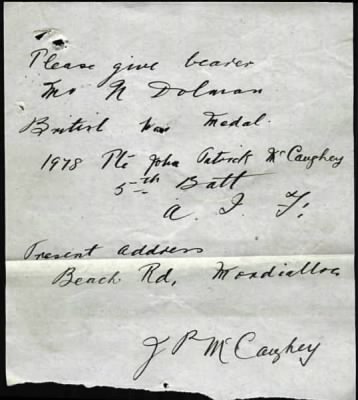 Please give bearer
Mr N Dolman
British War Medal.
1978 Pte John Patrick McCaughey
5th Batt
A. I. F.
Present address
Beach Rd, Mordialloc
J P McCaughey